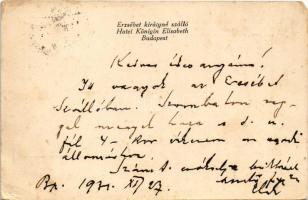 Erzsébet királyné szálló
Hotel Königin Elisabeth
Budapest
Kedves édes anyám!
Itt vagyok az Erzsébet
szállóban. Szombaton reg-
gel megyek haza s d. u.
fél 4-kor érkezem az egri
állomásra.
Számt. csókolja
Bp. 1931. XI/27.